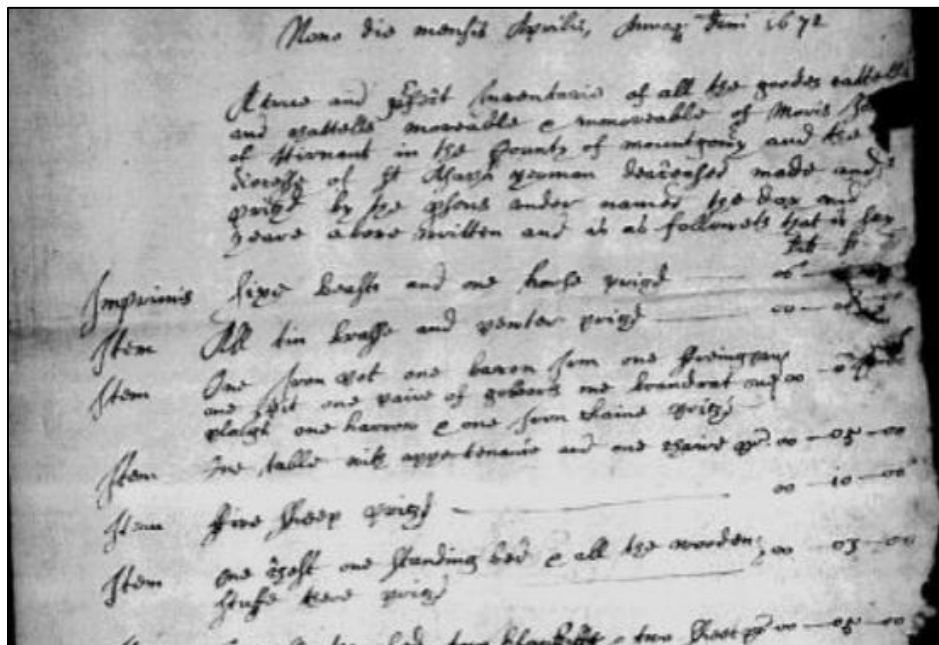 Nono die mensis Aprilis, Annoq Dmi 1672
A true and pfect Inventarie of all the goodes cattells
and chattells moveable & immoveable of Moris
of Hirnant in the County of mountgomy and the
diocesse of St Assaph yeoman deceased made and
prized by the psons under named the day and
yeare above written and is as followeth that is say
Imprimis sixe beasts and one horse prized
Item All tin brasse and peuter prized 00
Item One Iron pot one bacon Iron one frieingpan
one spit one paire of gobarts one brandrat one 00
plough one harrow & one Iron chaine prized
Item One table with appertenance and one chaire pd. 00 - 05 - 00
Item five sheep prized 00 - 10 - 00
Item one chest one standing bed & all the wooden 00 - 03 - 00
stuffe there prized
two blanketts & two sheets pd 00 - 05 - 00